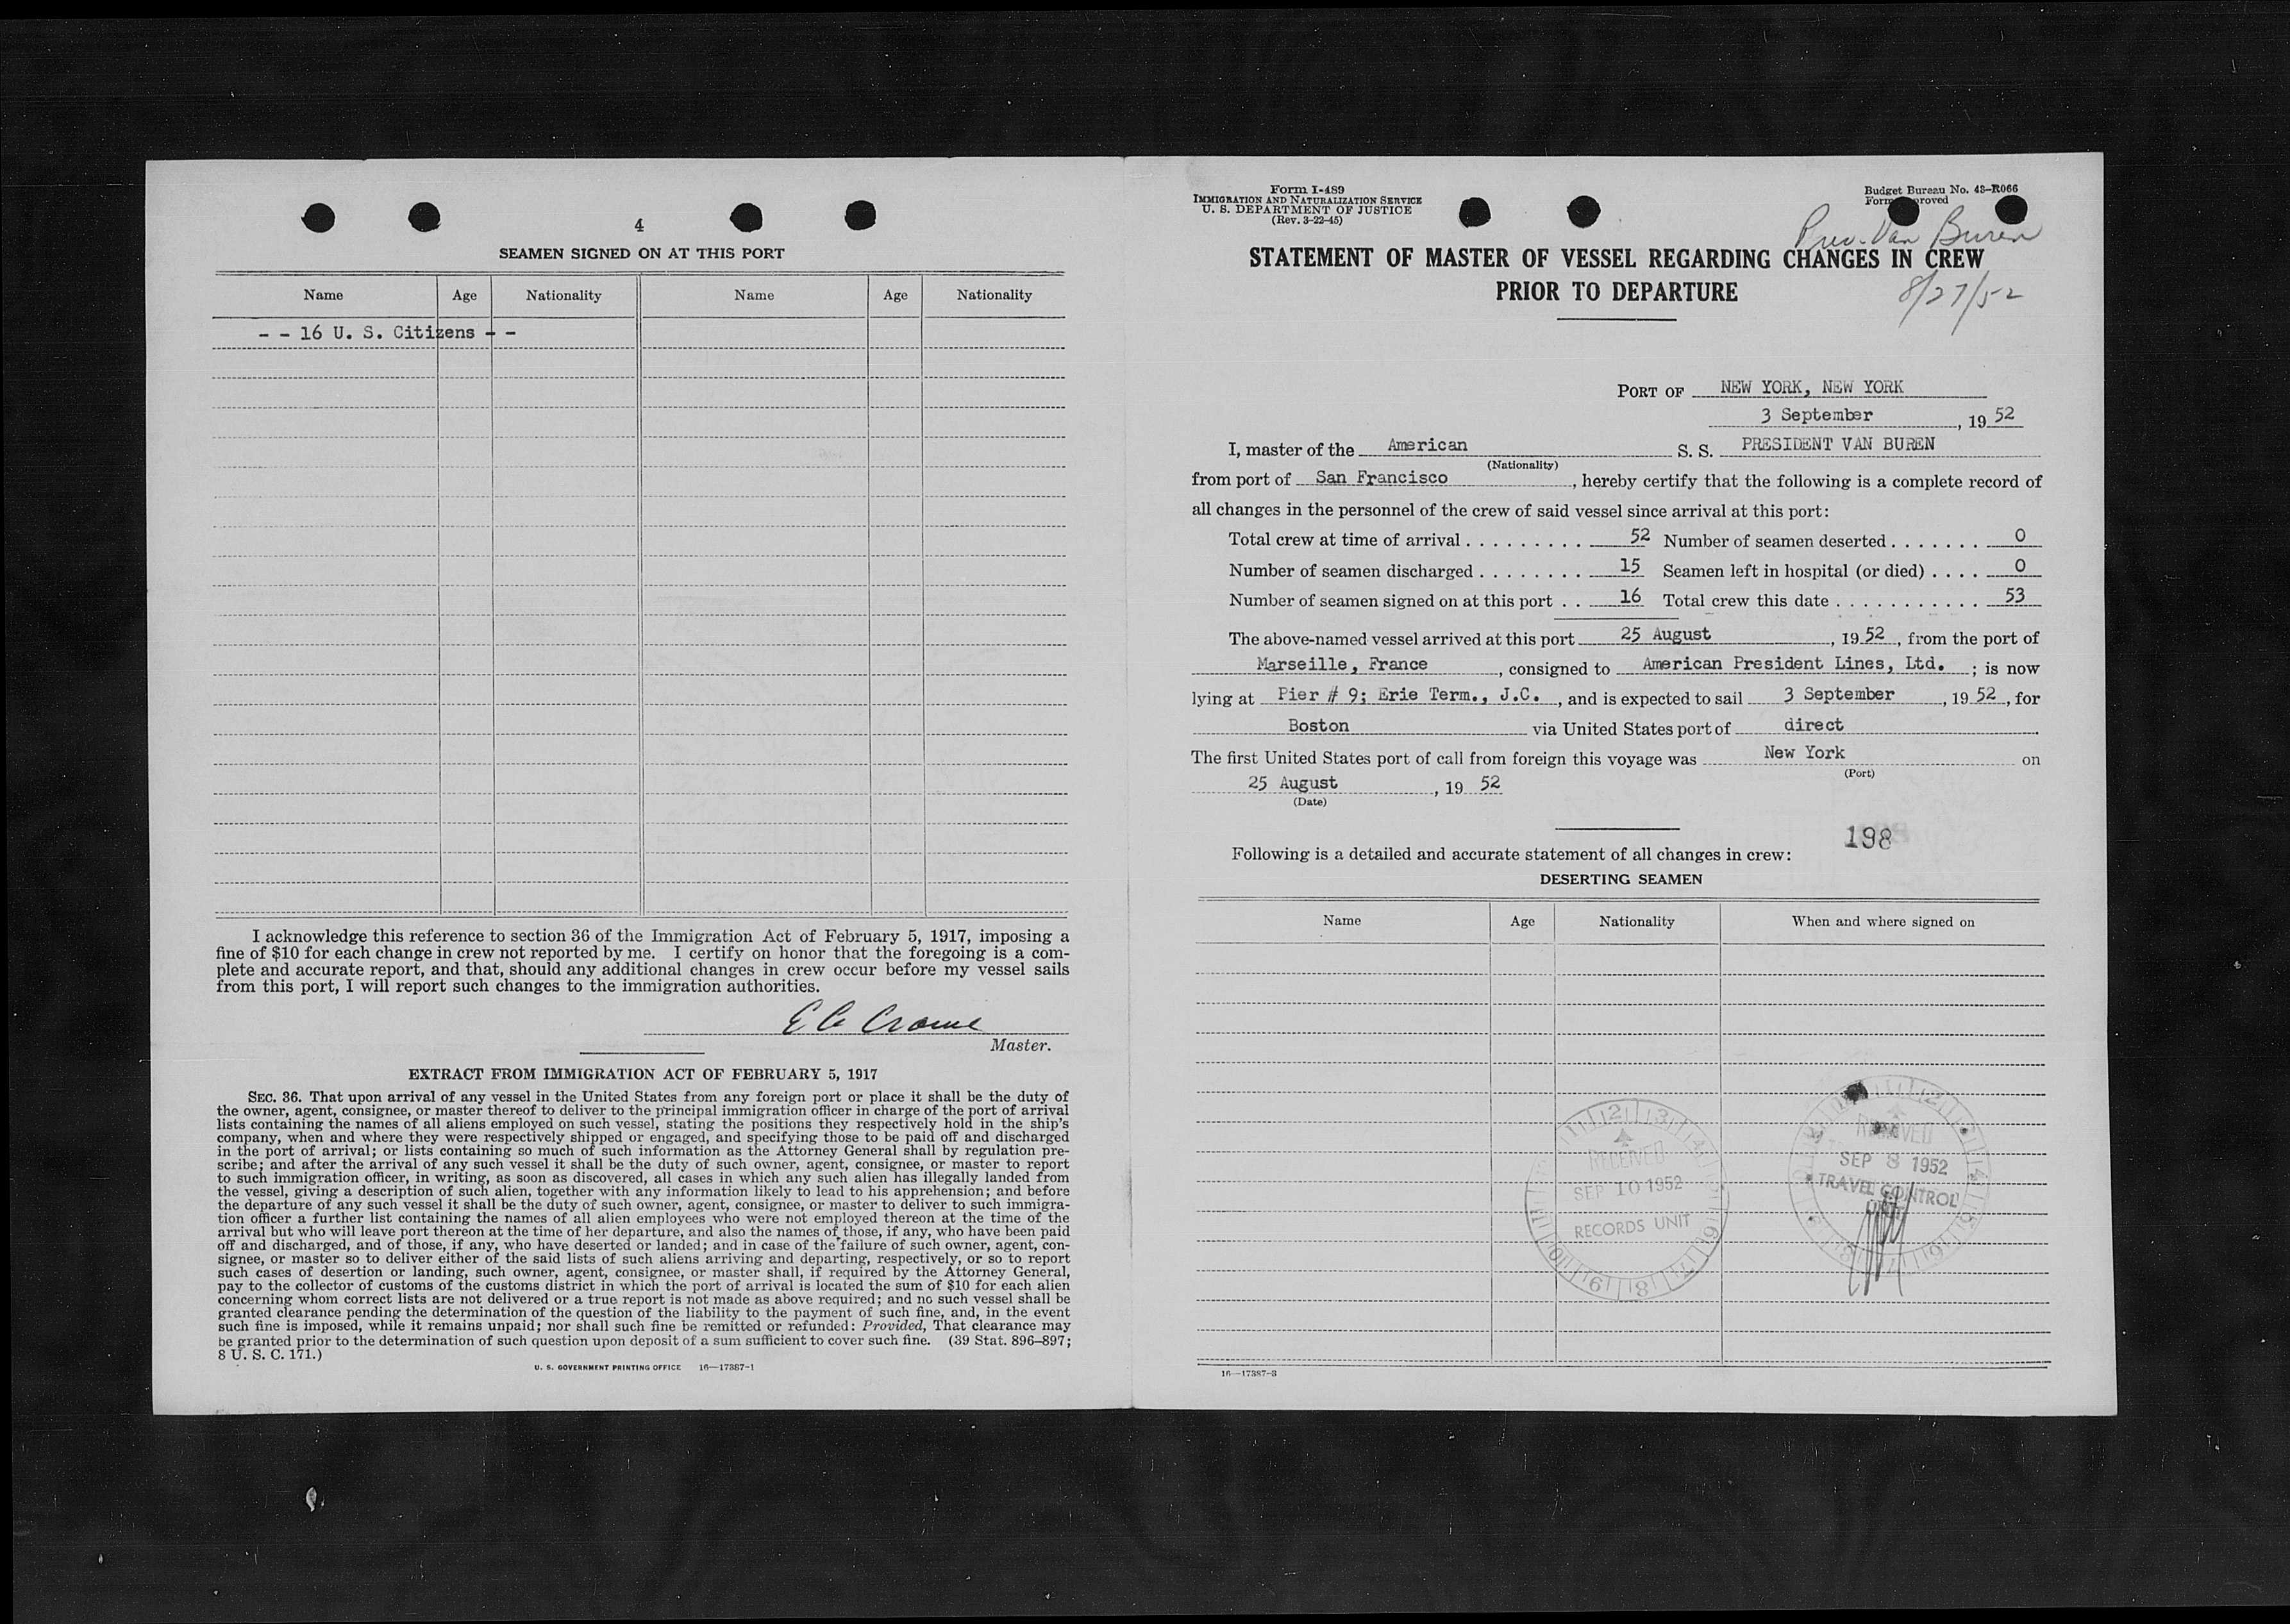 4
SEAMEN SIGNED ON AT THIS PORT
Name Age Nationality Name Age Nationality
- - 16 U. S. Citizens - -
I acknowledge this reference to section 36 of the Immigration Act of February 5, 1917, imposing a
fine of $10 for each change in crew not reported by me. I certify on honor that the foregoing is a com-
plete and accurate report, and that, should any additional changes in crew occur before my vessel sails
from this port, I will report such changes to the immigration authorities.
Master.
EXTRACT FROM IMMIGRATION ACT OF FEBRUARY 5, 1917
SEC. 36. That upon arrival of any vessel in the United States from any foreign port or place it shall be the duty of
the owner, agent, consignee, or master thereof to deliver to the principal immigration officer in charge of the port of arrival
lists containing the names of all aliens employed on such vessel, stating the positions they respectively hold in the ship's
company, when and where they were respectively shipped or engaged, and specifying those to be paid off and discharged
in the port of arrival; or lists containing so much of such information as the Attorney General shall by regulation pre-
scribe; and after the arrival of any such vessel it shall be the duty of such owner, agent, consignee, or master to report
to such immigration officer, in writing, as soon as discovered, all cases in which any such alien has illegally landed from
the vessel, giving a description of such alien, together with any information likely to lead to his apprehension; and before
the departure of any such vessel it shall be the duty of such owner, agent, consignee, or master to deliver to such immigra-
tion officer a further list containing the names of all alien employees who were not employed thereon at the time of the
arrival but who will leave port thereon at the time of her departure, and also the names of those, if any, who have been paid
off and discharged, and of those, if any, who have deserted or landed; and in case of the failure of such owner, agent, con-
signee, or master so to deliver either of the said lists of such aliens arriving and departing, respectively, or so to report
such cases of desertion or landing, such owner, agent, consignee, or master shall, if required by the Attorney General,
pay to the collector of customs of the customs district in which the port of arrival is located the sum of $10 for each alien
concerning whom correct lists are not delivered or a true report is not made as above required; and no such vessel shall be
granted clearance pending the determination of the question of the liability to the payment of such fine, and, in the event
such fine is imposed, while it remains unpaid; nor shall such fine be remitted or refunded: Provided, That clearance may
be granted prior to the determination of such question upon deposit of a sum sufficient to cover such fine. (39 Stat. 896–897;
8 U. S. C. 171.)
U. S. GOVERNMENT PRINTING OFFICE 16—17387-1
Form I-489
IMMIGRATION AND NATURALIZATION SERVICE
U. S. DEPARTMENT OF JUSTICE
(Rev. 3-22-45)
Budget Bureau No. 43–R066
Van Buren
STATEMENT OF MASTER OF VESSEL REGARDING CHANGES IN CREW
PRIOR TO DEPARTURE
8/27/52
PORT OF NEW YORK, NEW YORK
3 September, 1952
I, master of the American S. S. PRESIDENT VAN BUREN
(Nationality)
from port of San Francisco, hereby certify that the following is a complete record of
all changes in the personnel of the crew of said vessel since arrival at this port:
Total crew at time of arrival . . . . . . . . . . 52 Number of seamen deserted . . . . . . . 0
Number of seamen discharged . . . . . . . . . 15 Seamen left in hospital (or died) . . . . 0
Number of seamen signed on at this port . . 16 Total crew this date . . . . . . . . . . . 53
The above-named vessel arrived at this port 25 August, 1952, from the port of
Marseille, France, consigned to American President Lines, Ltd.; is now
lying at Pier # 9; Erie Term., J.C., and is expected to sail 3 September, 1952, for
Boston via United States port of direct
The first United States port of call from foreign this voyage was New York on
(Port)
25 August, 1952
(Date)
198
Following is a detailed and accurate statement of all changes in crew:
DESERTING SEAMEN
Name Age Nationality When and where signed on
RECEIVED
SEP 10 1952
RECORDS UNIT
SEP 8 1952
TRAVEL CONTROL
UNIT
16—17387-3